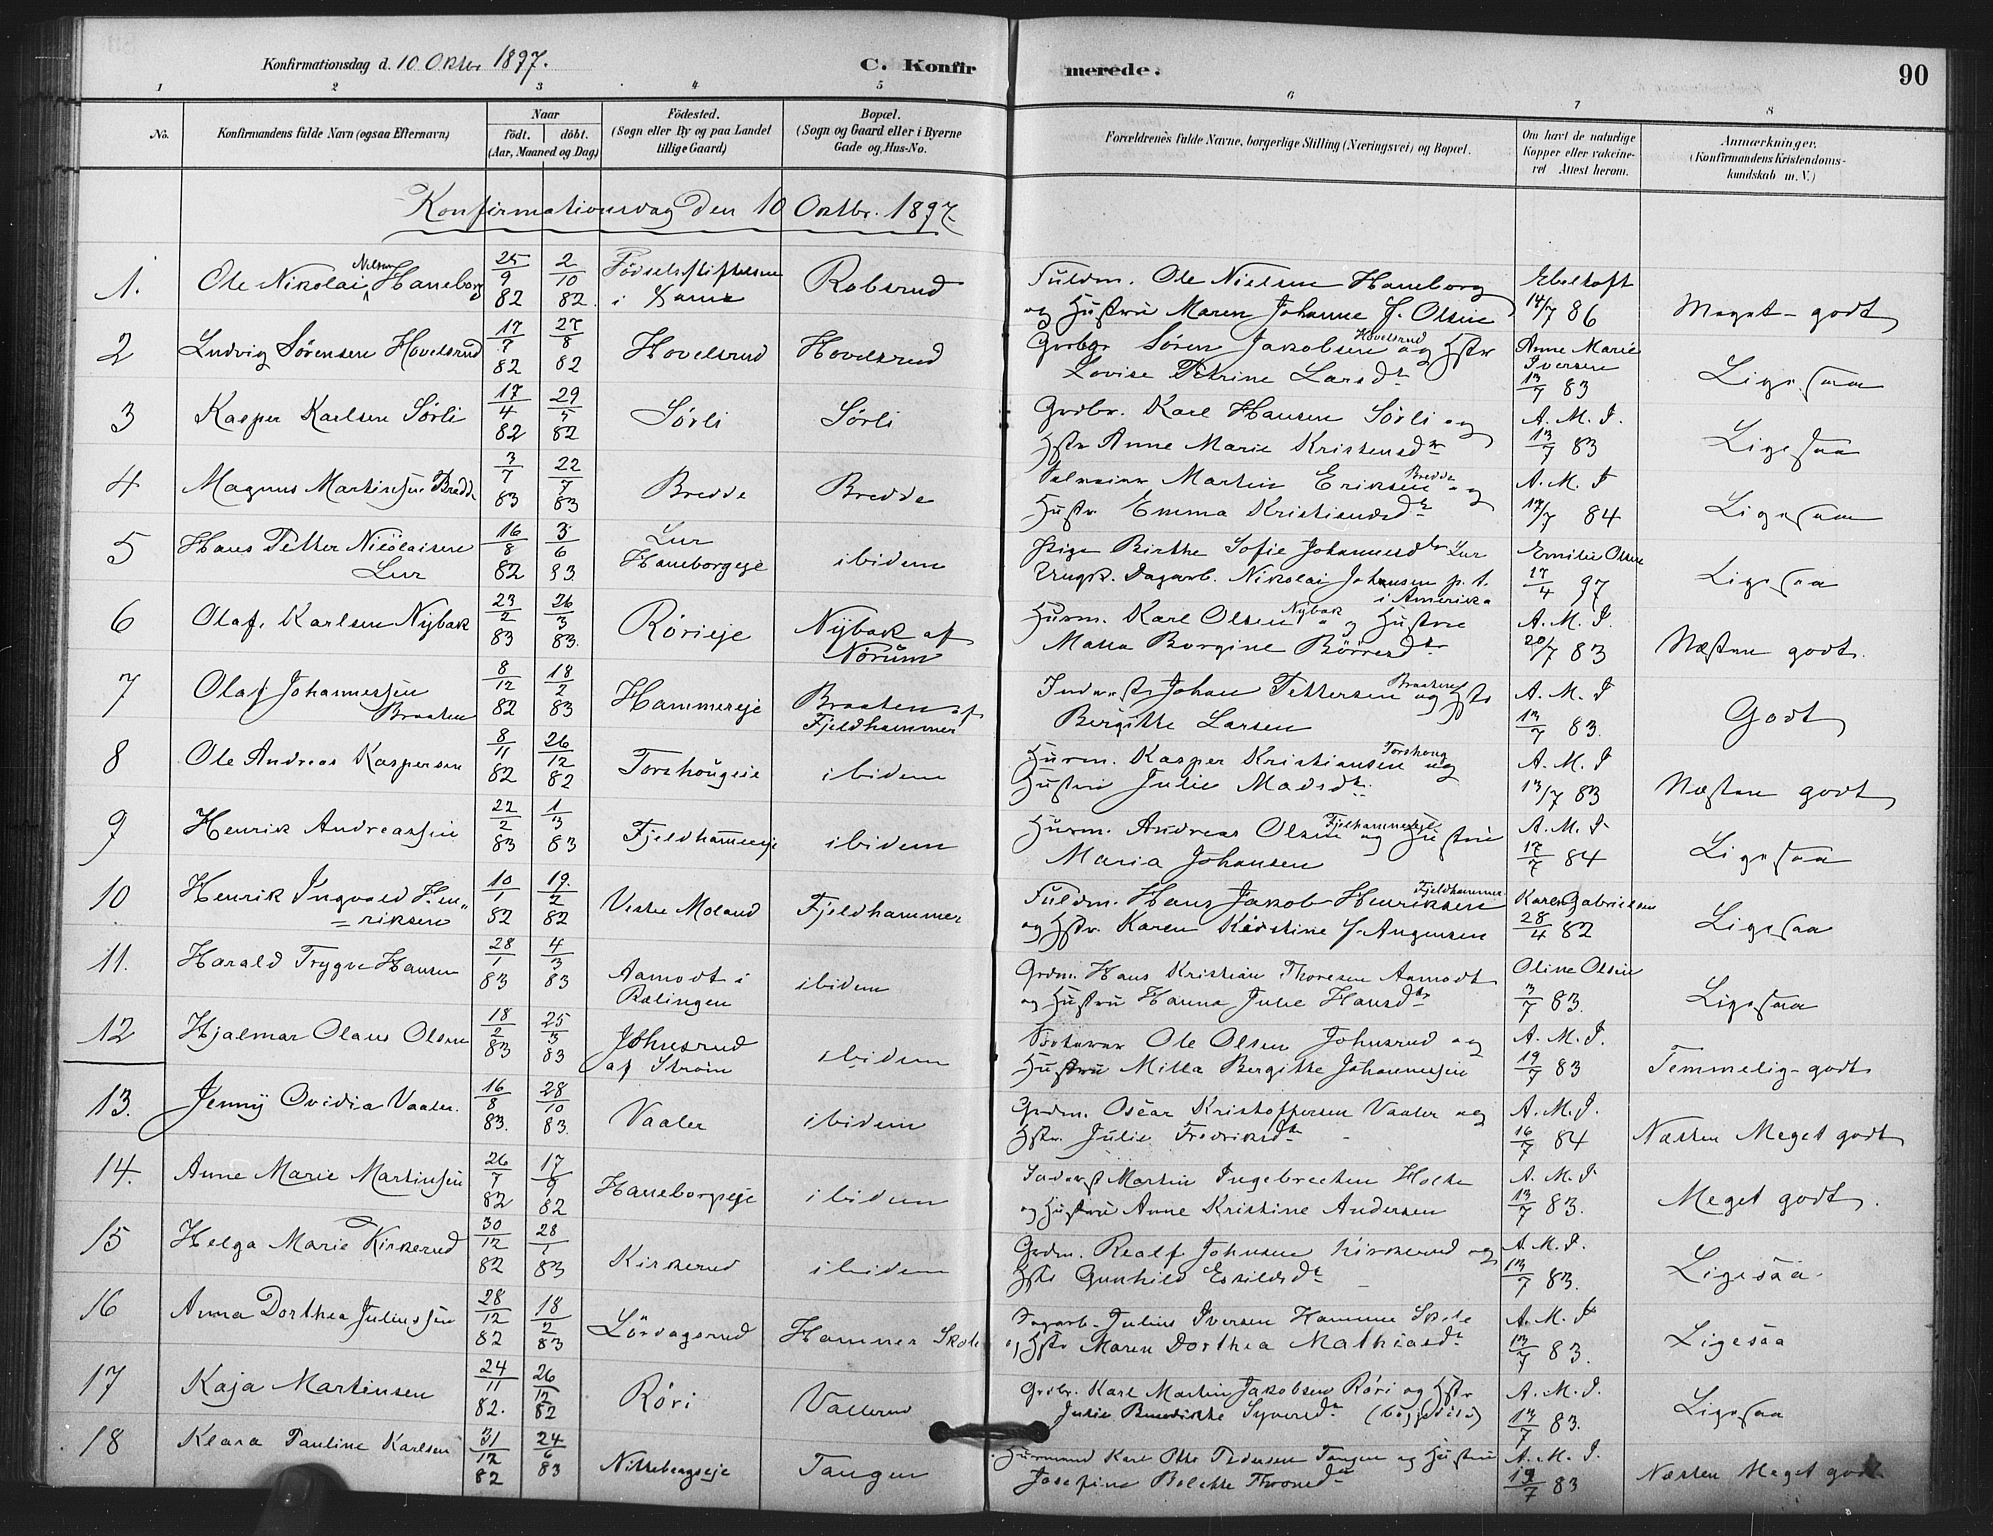 Konfirmationsdag d. 10 Oktbr 1897.
C. Konfirmerede.
90
1 2 3 4 5 6 7 8
No.
Konfirmandens fulde Navn (ogsaa Efternavn)
Naar
født. døbt.
(Aar, Maaned og Dag)
Fødested.
(Sogn eller By og paa Landet
tillige Gaard)
Bopæl.
(Sogn og Gaard eller i Byerne
Gade og Hus-No.
Forældrenes fulde Navne, borgerlige Stilling (Næringsvei) og Bopæl.
Om havt de naturlige
Kopper eller vakcine-
ret Attest herom.
Anmærkninger.
(Konfirmandens Kristendoms-
kundskab m. V.)
Konfirmationsdag den 10 Oktbr. 1897
1. Ole Nikolai Nilsen Haneborg 25/9 82 2/10 82 Fødselsstiftelsen Robsrud Fuldm. Ole Nielsen Haneborg Ebeltoft Meget godt
og Hustru Maren Johanne J. Olsen 14/7 86
2 Ludvig Sørensen Hovelsrud 17/7 82 27/8 82 Hovelsrud Hovelsrud Grdbr Søren Jakobsen Hovelsrud og Hstr Anne Marie Iversen Ligesaa
Lovise Petrine Larsdtr 13/7 83
3 Kasper Karlsen Sørli 17/4 82 29/5 82 Sørli Sørli Grdbr. Karl Hansen Sørli og A. M. I. Ligesaa
Hstr Anne Marie Kristensdtr 13/7 83
4 Magnus Martinsen Bredde 3/7 83 22/7 83 Bredde Bredde Martin Eriksen Bredde og A. M. I Ligesaa
Hustr Emma Kristiansdtr 17/7 84
5 Hans Petter Nicolaisen 16/8 82 3/6 93 Lur ibidem Pige Birthe Sofie Johannesdtr Lur Emilie Olsen Ligesaa
Lur Haneborgeje Ungk. Dagarb. Nikolai Johansen p. t. i Amerika 27/4 97
6 Olaf Karlsen Nybak 23/2 83 26/3 83. Rørieje Nybak af Nørum Husm. Karl Olsen Nybak og Hustru A. M. I. Næsten godt.
Mathea Borgine Børresdtr 20/7 83
7 Olaf Johannessen 8/12 82 18/2 83 Hammereje Braaten af Inderst Johan Pettersen Braaten og Hstr A. M. I Godt
Braaten Fjeldhammer Bergitte Larsen 13/7 83.
8 Ole Andreas Kaspersen 8/11 82 26/12 82 Torshougeie ibidem Husm. Kasper Kristiansen Torshoug og A. M. I Næsten godt
Hustru Julie Madsdtr. 13/7 83
9 Henrik Andreassen 22/2 83 1/3 83 Fjeldhammereje ibidem Husm. Andreas Olsen Fjelhammereje og Hustru A. M. I Ligesaa
Maria Johansen 17/7 84
10 Henrik Ingvald Hen„ 10/1 82 19./2 82 Vestre Moland Fjeldhammer Fuldm. Hans Jakob Henriksen Fjeldhammer Karen Gabrielsen Ligesaa
=riksen og Hstr. Karen Kirstine f. Augensen 28/4 82
11. Harald Trygve Hansen 28/1 83 4/3 83 Aamodt i ibidem Grdm. Hans Kristian Thoresen Aamodt Oline Olsen Ligesaa
Rælingen og Hustru Hanna Julie Hansdtr 3/7 83.
12 Hjalmar Olaus Olsen 18/2 83 25/3 83 Johnsrud ibidem Ole Olsen Johnsrud og A. M. I. Temmelig godt
af Strøm Hustru Milla Bergitte Johannessen 19/7 83
13. Jenny Ovidia Vaaler. 16/8 83. 28/10 83. Vaaler ibidem Grdm. Oscar Kristoffersen Vaaler og A. M. I. Næsten Meget godt
Hstr. Julie Fredriksdtr 16/7 84
14. Anne Marie Martinsen 26/7 82 17/9 82 Haneborgeje ibidem Inderst Martin Ingebretsen Holte A. M. I Meget godt.
og Hustru Anne Kristine Andersen 13/7 83.
15 Helga Marie Kirkerud 30/12 82 28/1 83 Kirkerud ibidem Grdm. Realf Johnsen Kirkerud og A. M. I. Ligesaa
Hstr Gunhild Eskildsdtr 13/7 83.
16 Anna Dorthea Juliussen 28/12 82 18/2 83 Lørdagsrud Hammer Skole Dagarb. Julius Iversen Hammer Skole A. M. I Ligesaa
og Hstr Maren Dorthea Mathiasdtr 13/7 83.
17 Kaja Martinsen 24/11 82. 26/12 82 Røri Vallerud Grdbr. Karl Martin Jakobsen Røri og Hstr A. M. I. Ligesaa
Julie Benedikte Syversdtr (begge døde) 13/7 83.
18 Klara Pauline Karlsen 31/12 82 24/6 83 Nittebergseje Tangen Husmand Karl Otto Pedersen Tangen og Hustru A. M. I. Næsten Meget godt
Josefine Belette Thronsdtr 19/7 83